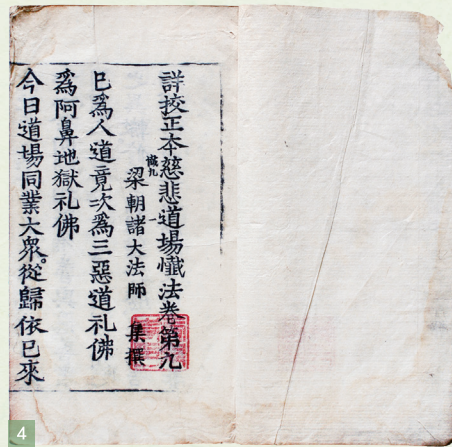 詳挍正夲慈悲道場懴法卷第九
懴九 一
梁朝諸大法師 集撰
已爲人道竟次爲三惡道礼佛
爲阿鼻地獄礼佛
今日道場同業大衆。從歸依已來
4